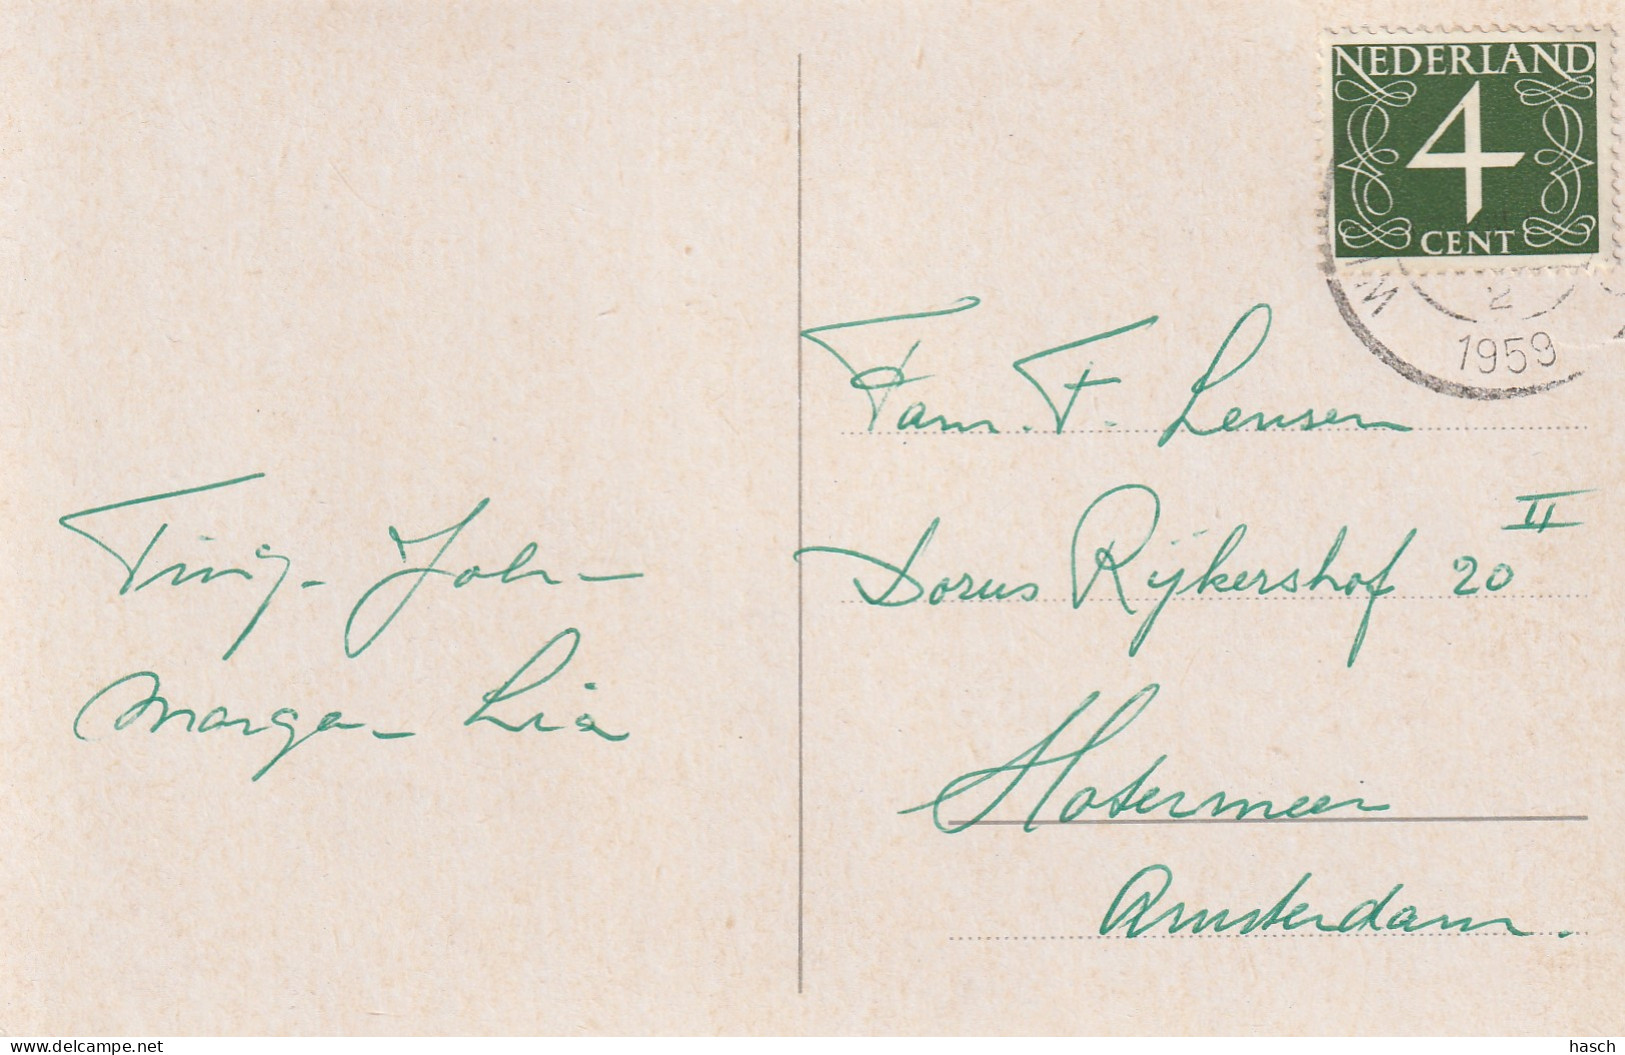 NEDERLAND
4
CENT
2
1959
Fam. F. Lensen
Dorus Rijkershof 20 II
Slotermeer
Amsterdam.
Tiny - John -
Marga - Lia
© www.delcampe.net
hasch